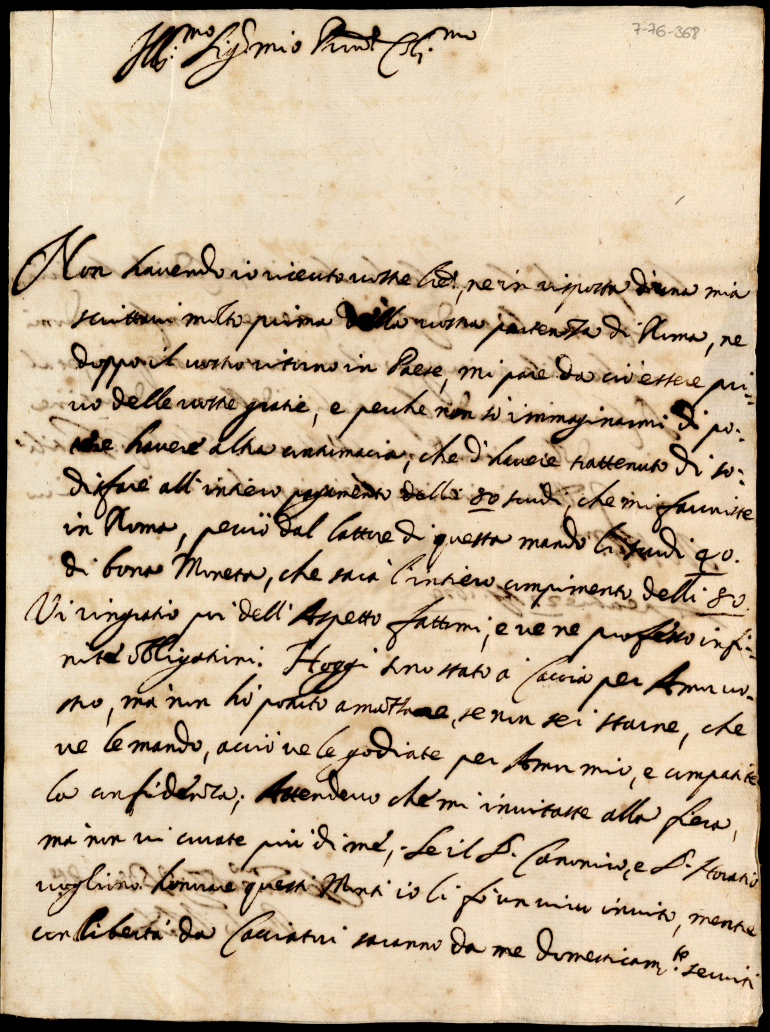 7-76-368
Ill.mo Sig.r mio Pron Col.mo
Non havendo io riceuto vostre l.re, ne in risposta di una mia
scrittavi molto prima della vostra partenza di Roma, ne
doppo il vostro ritorno in Paese, mi pare da ciò essere pri-
vo delle vostre gratie, e perche non sò immaginarmi di po-
tere havere altra contimacia, che d'havere trattenuto di so-
disfare all'intiero pagamento delli 80 scudi, che mi favoriste
in Roma, perciò dal lattore di questa mando li scudi 40.
di bona Moneta, che sarà l'intiero compimento delli 80.
Vi ringratio poi dell'Aspetto fattomi, e ve ne professo infi-
nite obligationi. Hoggi sono stato à Caccia per Amor vo-
stro, mà non hò potuto amazzare, se non sei starne, che
ve le mando, acciò ve le godiate per Amor mio, e compatite
la confidenza; Attendevo che mi invitaste alla fiera,
ma non vi curate più di me, Se il S.r Canonico, e S.r Horatio
vogliono honorare questi Monti io li fò un vivo invito, mentre
con libertà da Cacciatori saranno da me domesticam.te serviti